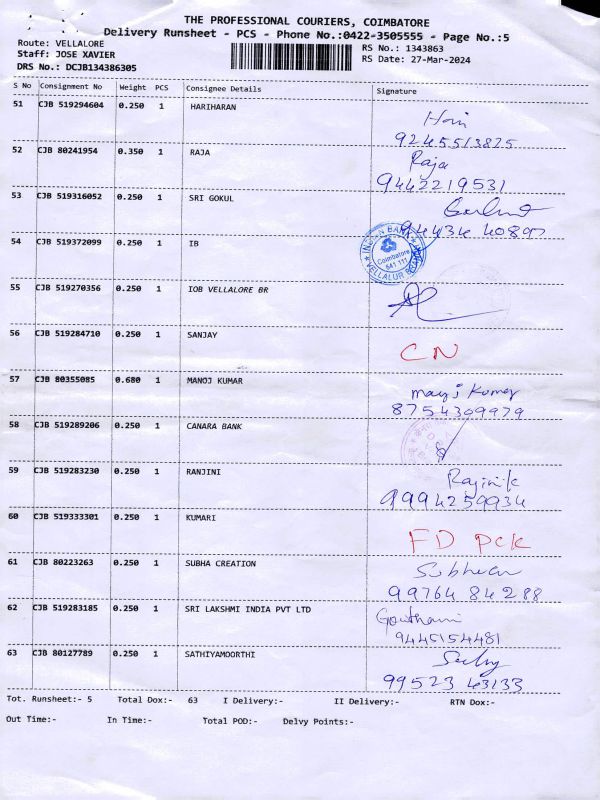 THE PROFESSIONAL COURIERS, COIMBATORE
Delivery Runsheet - PCS - Phone No.:0422-3505555 - Page No.:5
Route: VELLALORE
RS No.: 1343863
Staff: JOSE XAVIER
RS Date: 27-Mar-2024
DRS No.: DCJB134386305
S No Consignment No Weight PCS Consignee Details Signature
51 CJB 519294604 0.250 1 HARIHARAN
Hari
9245513825
52 CJB 80241954 0.350 1 RAJA
Raja
9442219531
53 CJB 519316052 0.250 1 SRI GOKUL
94434 40897
54 CJB 519372099 0.250 1 IB
INDIAN BANK
Coimbatore
641 111
VELLALUR BRANCH
55 CJB 519270356 0.250 1 IOB VELLALORE BR
56 CJB 519284710 0.250 1 SANJAY
CN
57 CJB 80355085 0.680 1 MANOJ KUMAR
manoj Kumar
8754309979
58 CJB 519289206 0.250 1 CANARA BANK
59 CJB 519283230 0.250 1 RANJINI
9994259934
60 CJB 519333301 0.250 1 KUMARI
FD PCK
61 CJB 80223263 0.250 1 SUBHA CREATION
99764 84288
62 CJB 519283185 0.250 1 SRI LAKSHMI INDIA PVT LTD
Gowthami
9445154481
63 CJB 80127789 0.250 1 SATHIYAMOORTHI
99523 43133
Tot. Runsheet:- 5 Total Dox:- 63 I Delivery:- II Delivery:- RTN Dox:-
Out Time:- In Time:- Total POD:- Delvy Points:-